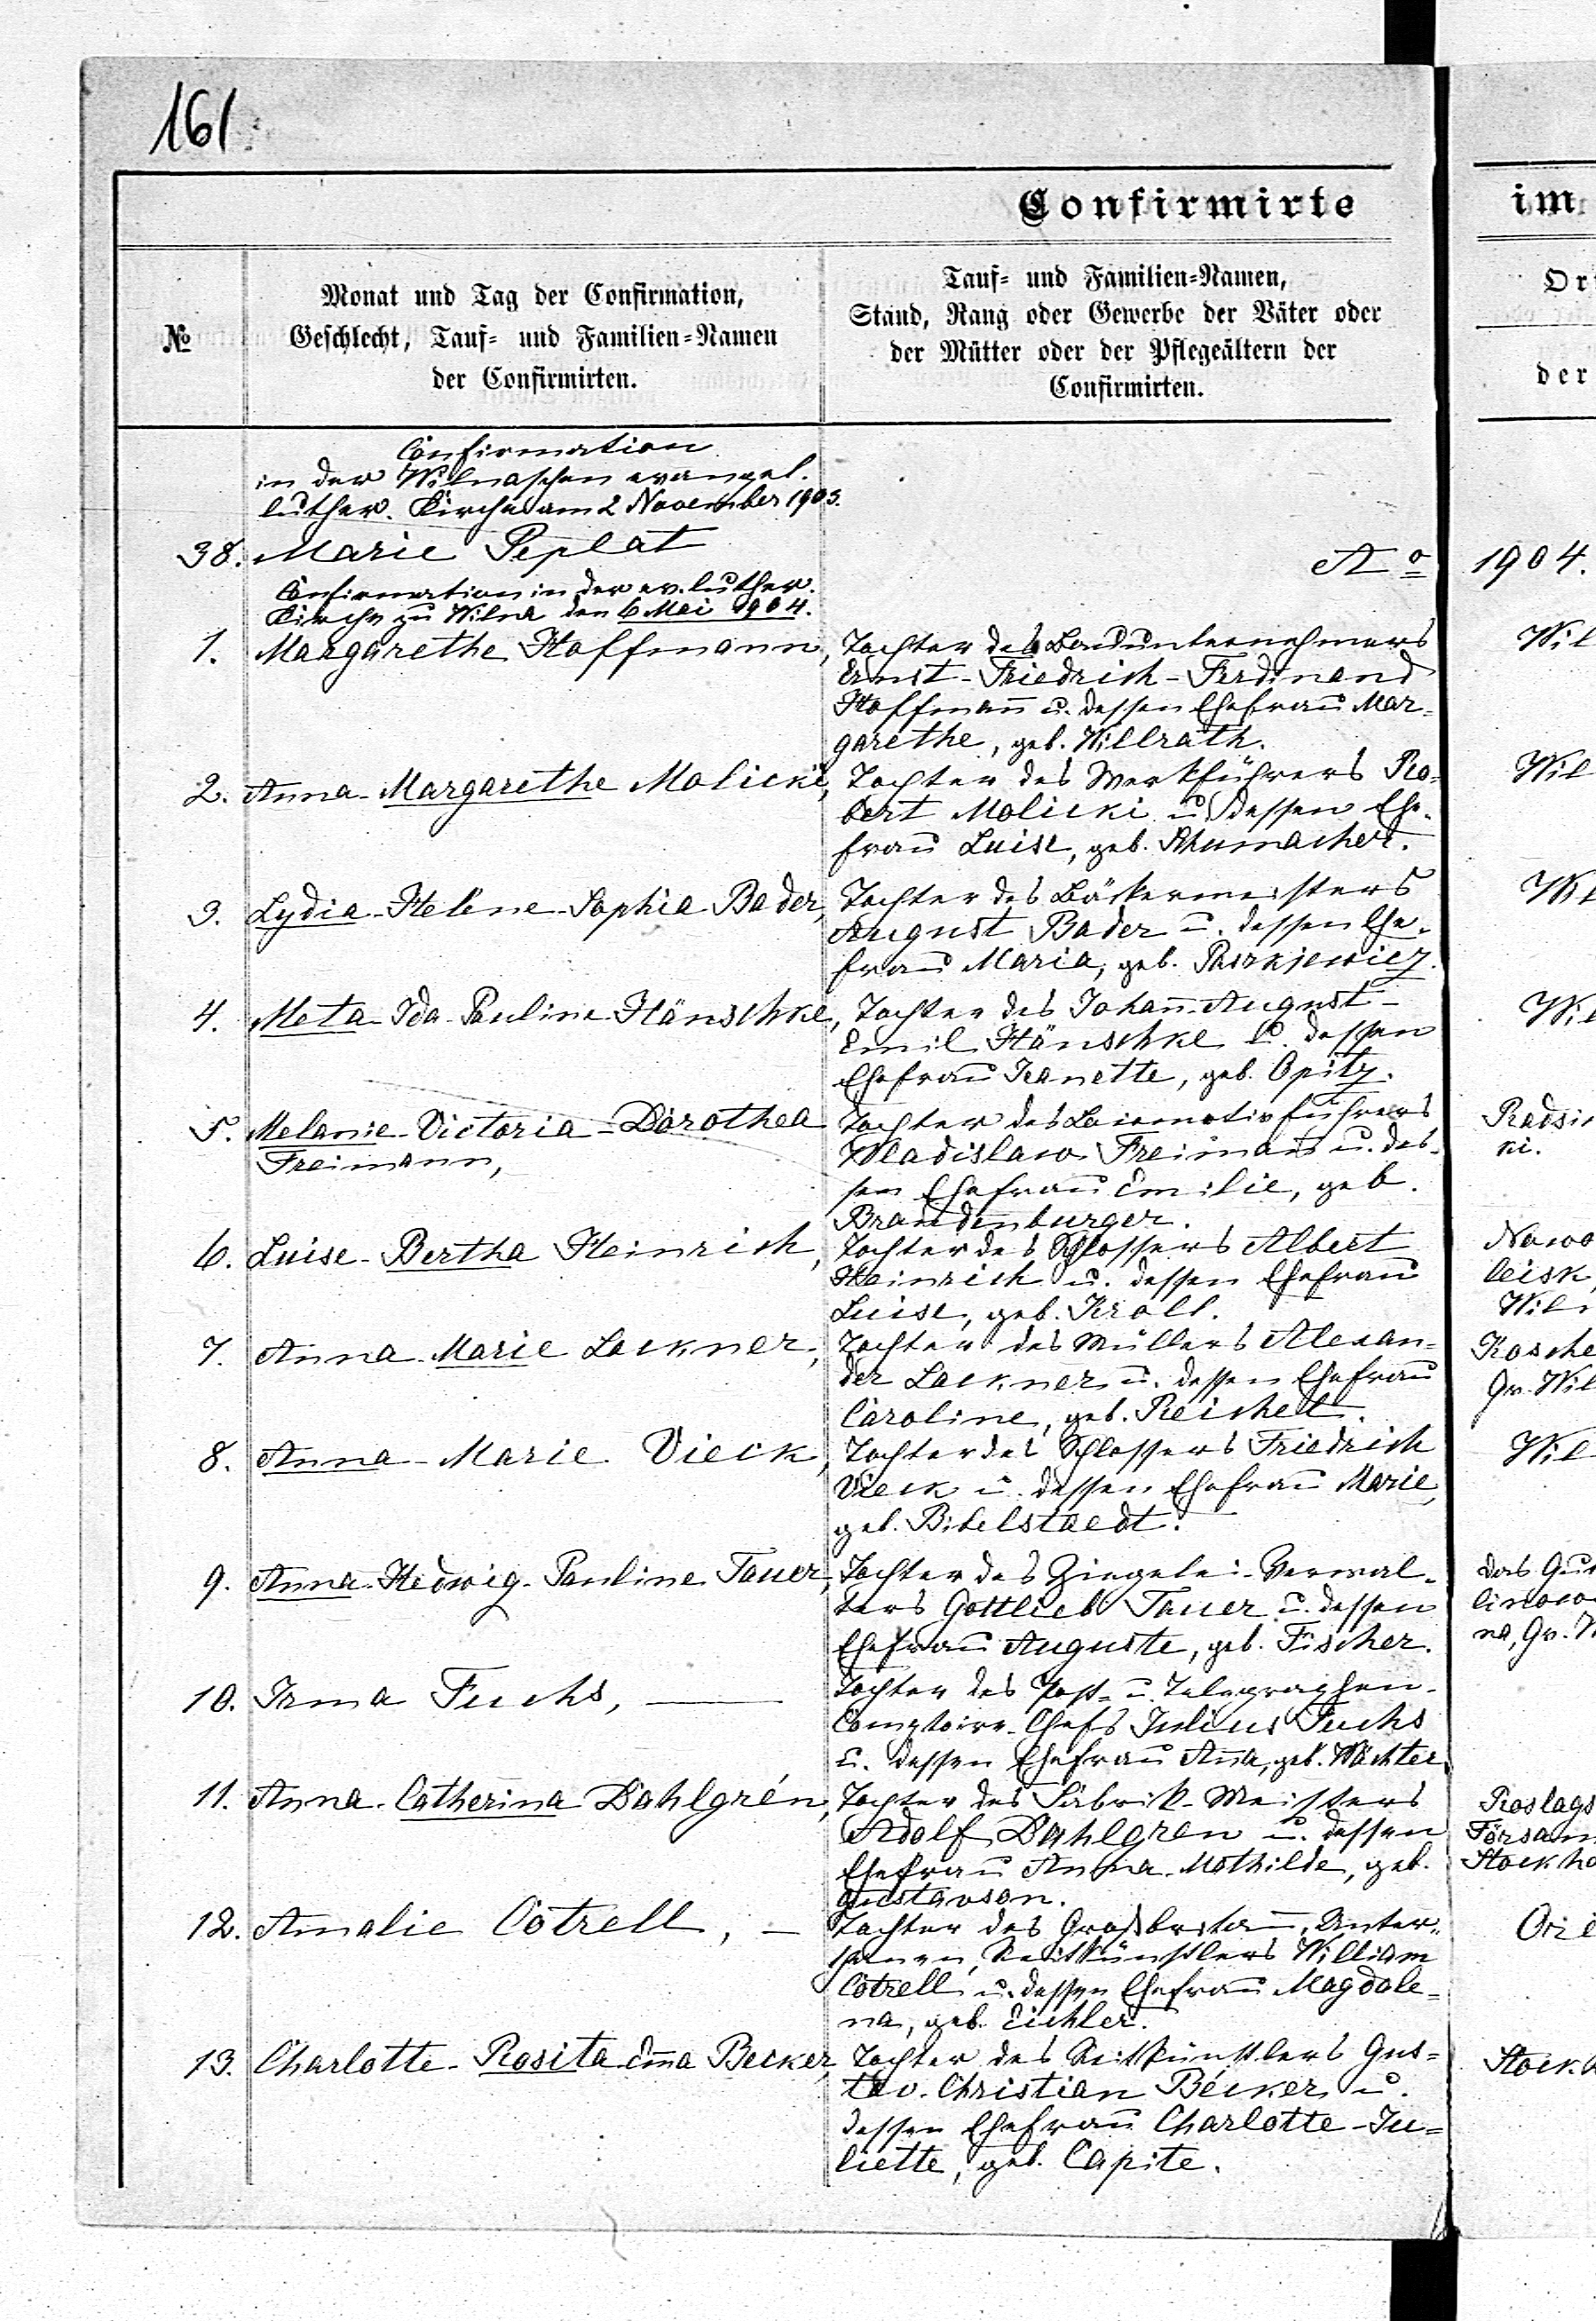 161.
Confirmirte
im
№
Monat und Tag der Confirmation,
Geschlecht, Tauf- und Familien-Namen
der Confirmirten.
Tauf- und Familien-Namen,
Stand, Rang oder Gewerbe der Väter oder
der Mütter oder der Pflegeältern der
Confirmirten.
Or
der
Confirmation
in der Wilnaschen evangel.
luther. Kirche am 2 November 1903.
38. Marie Peplat
Ao 1904.
Confirmation in der ev. luther.
Kirche zu Wilna den 6 Mai 1904.
1. Margarethe Hoffmann, Tochter des Bauunternehmers
Ernst-Friedrich-Ferdinand
Hoffmann u. dessen Ehefrau Mar-
garethe, geb. Willrath.
Wil
2. Anna-Margarethe Molicki, Tochter des Werkführers Ro-
bert Molicki u. dessen Ehe-
frau Luise, geb. Schumacher.
Wil
3. Lydia-Helene-Sophia Bader, Tochter des Bäckermeisters
August Bader u. dessen Ehe-
frau Maria, geb. Paszkjewicz.
Wil
4. Meta-Ida-Pauline Hänschke, Tochter des Johann-August-
Emil Hänschke u. dessen
Ehefrau Jeanette, geb. Opitz.
Wil
5. Melanie-Victoria-Dorothea
Freimann,
Tochter des Locomotivführers
Wladislaw Freimann u. des-
sen Ehefrau Emilie, geb.
Brandenburger.
Radsi
ki.
6. Luise-Bertha Heinrich, Tochter des Schlossers Albert
Heinrich u. dessen Ehefrau
Luise, geb. Kroll.
Nowo
leisk,
Wil
7. Anna-Marie Lackner, Tochter des Müllers Alexan-
der Lackner u. dessen Ehefrau
Caroline, geb. Reichelt.
Kosche
Gv. Wil
8. Anna-Marie Vieck, Tochter des Schlossers Friedrich
Vieck u. dessen Ehefrau Marie,
geb. Bibelstaedt.
Wil
9. Anna-Hedwig-Pauline Tauer, Tochter des Ziegelei-Verwal-
ters Gottlieb Tauer u. dessen
Ehefrau Auguste, geb. Fischer.
das Gut
linowo
na, Gv. W
10. Irma Fuchs, — Tochter des Post- u. Telegraphen-
Comptoir-Chefs Julius Fuchs
u. dessen Ehefrau Anna, geb. Wächter.
11. Anna-Catherina Dahlgrén, Tochter des Fabrik-Meisters
Adolf Dahlgren u. dessen
Ehefrau Anna-Mathilde, geb.
Gustavson.
Roslags
Församl
Stockho
12. Amalie Cotrell, — Tochter des Großbritann. Unter-
thanen, Reitkünstlers William
Cotrell u. dessen Ehefrau Magdale-
na, geb. Eichler.
13. Charlotte-Rosita-Emma Becker, Tochter des Reitkünstlers Gus-
tav-Christian Becker u.
dessen Ehefrau Charlotte-Ju-
liette, geb. Capite.
Stock